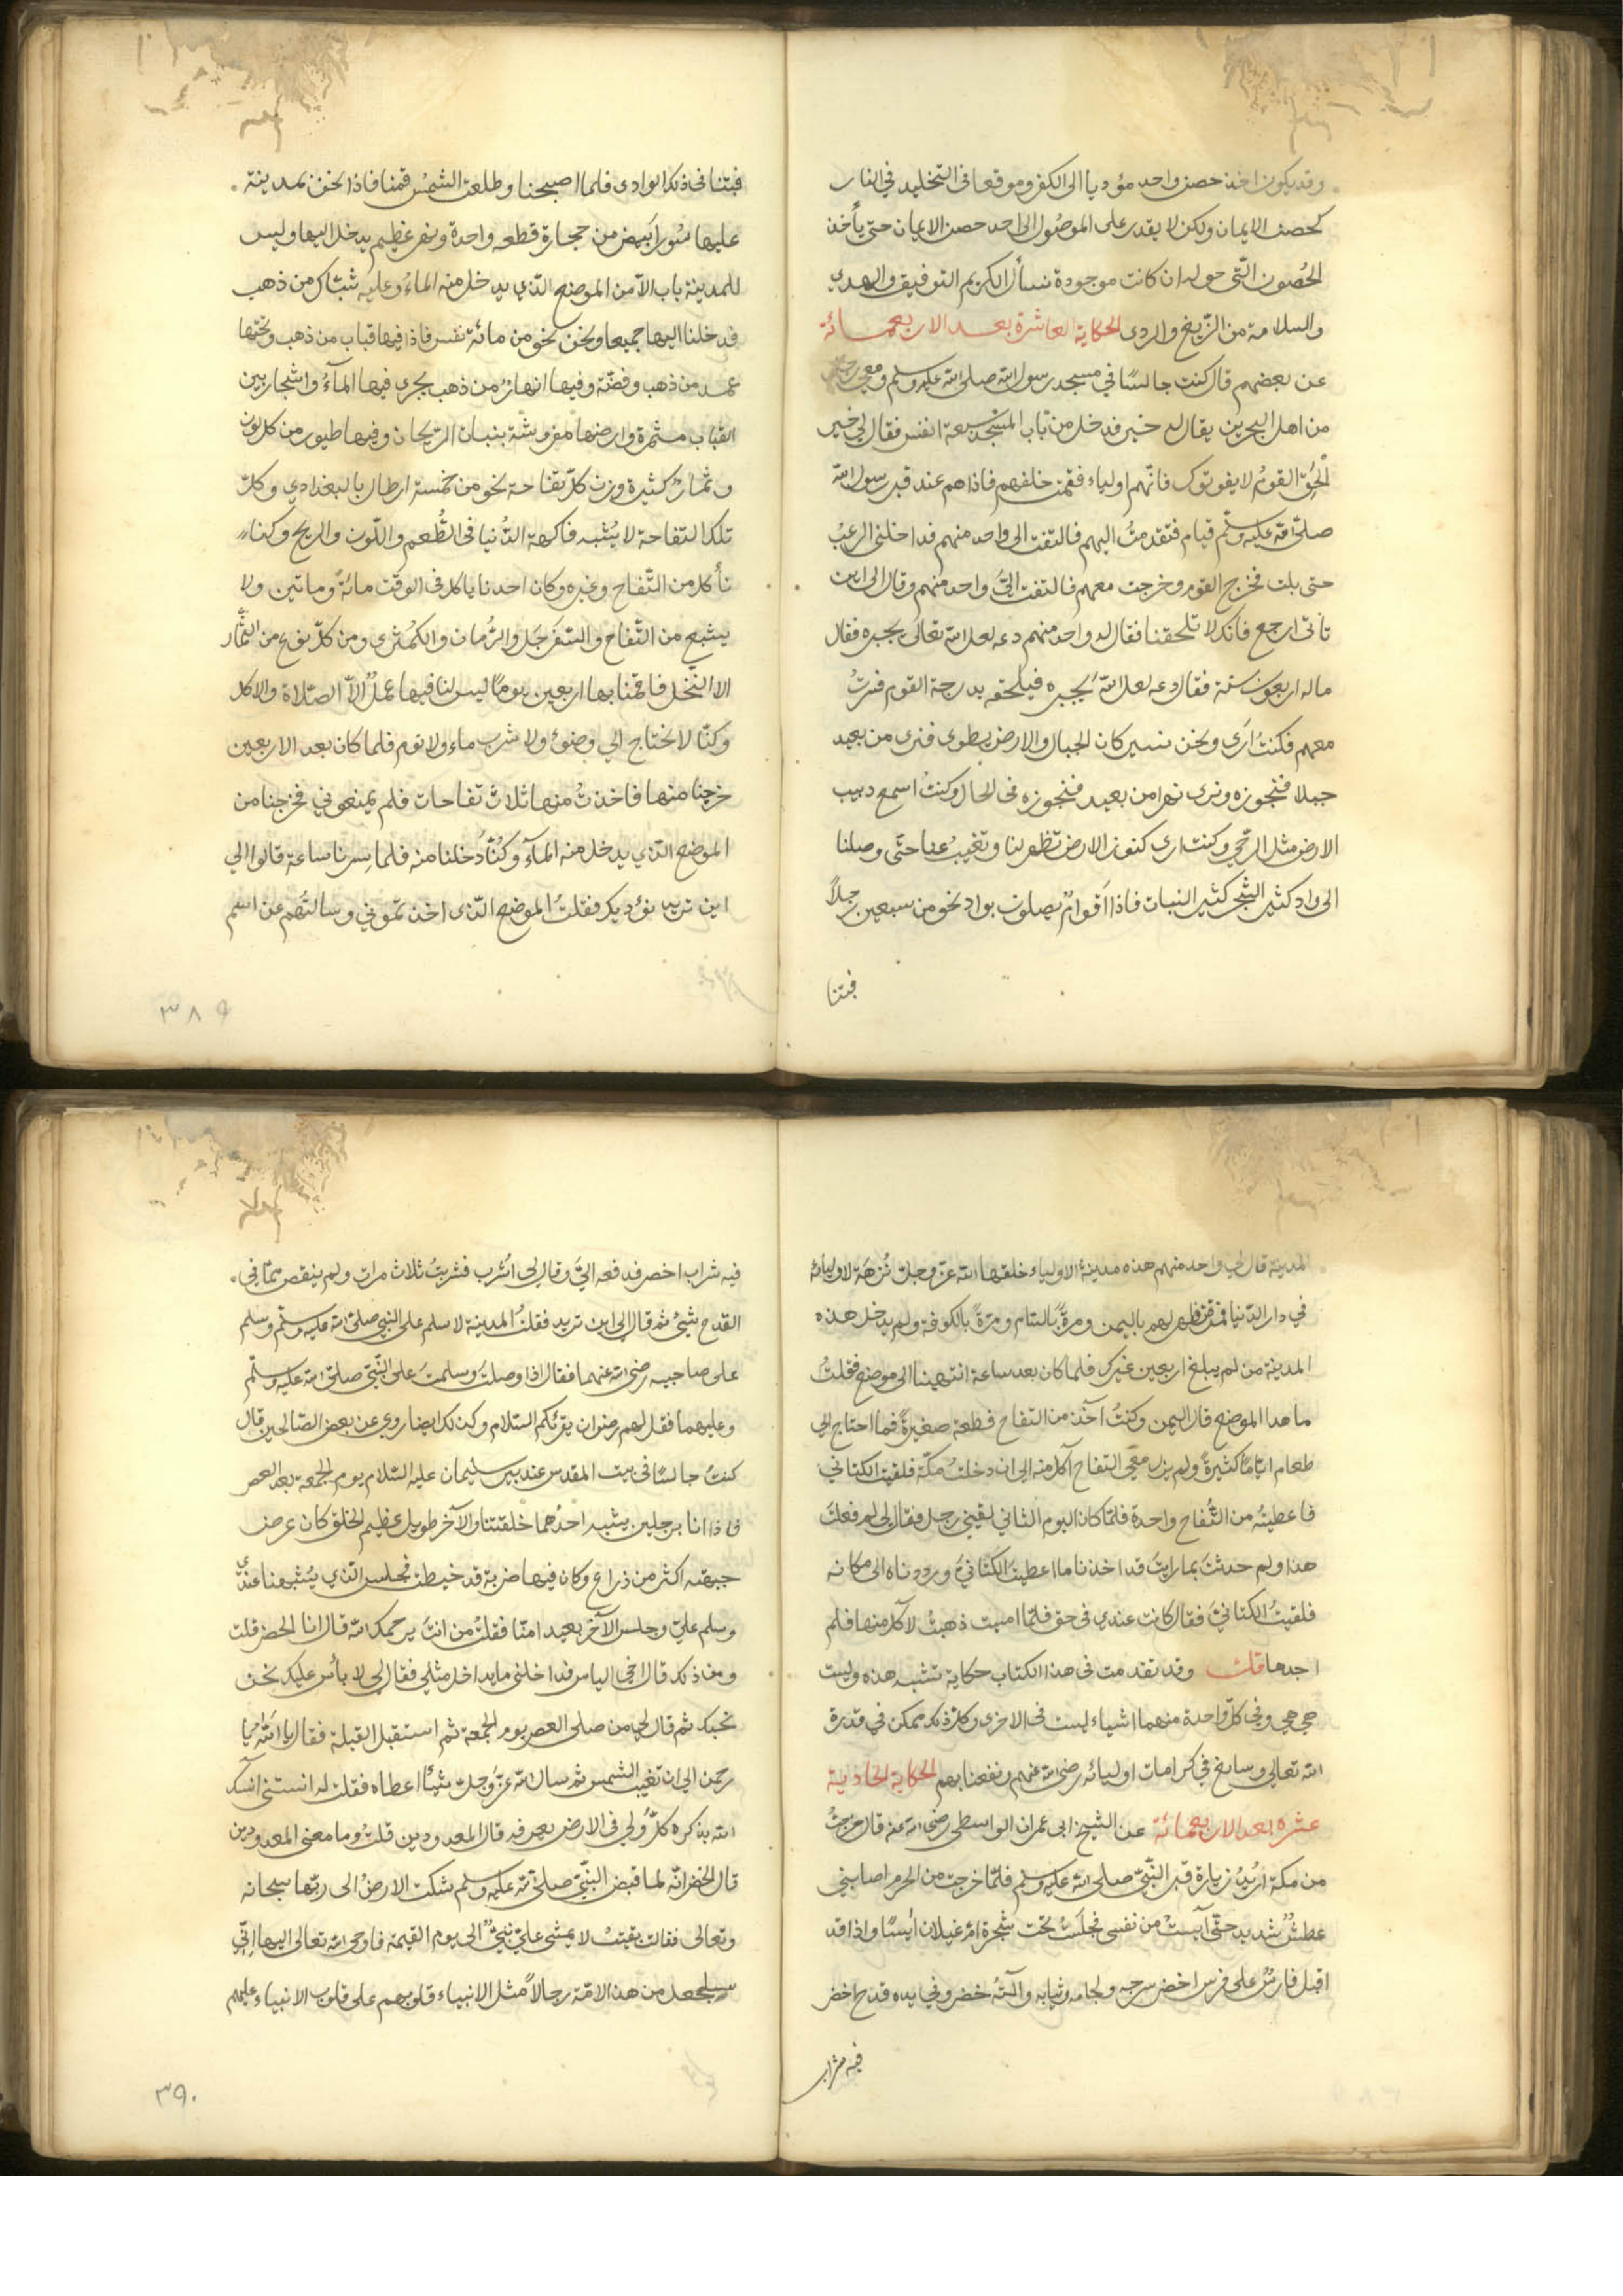 وقد يكون اخذ حصن واحد مؤديا الى الكفر وموقعا فى التخليد في النار
كحصن الايمان ولكن لا يقدر على الموصُول الى احد حصن الايمان حتى يأخذ
الحُصون الّتى حوله ان كانت موجودة نسأل الكريم التوفيق والهدي
والسلامة من الزّيغ والردى الحكاية العاشرة بعد الاربعمائة
عن بعضهم قال كنت جالسًا في مسجد رسول الله صلى الله عليه وسلم ومعي رجل
من اهل البحرين يقال له خير فدخل من باب المسجد سبعة انفس فقال لي خير
الحق القومُ لا يفوتوك فانّهم اولياء فقمت خلفهم فاذا هم عند قبر رسول الله
صلّى الله عليه وسلّم قيام فتقدمتُ اليهم فالتفت الى واحد منهم فداخلنى الرعبُ
حتى بلت فخرج القوم وخرجت معهم فالتفت اليّ واحد منهم وقال الى اين
تاتى ارجع فانك لا تلحقنا فقال له واحد منهم دعه لعل الله تعالى يجبره فقال
ماله اربعون سنة فقال دعه لعل الله يجبره فيلحقه بدرجة القوم فسرتُ
معهم فكنتُ ارى ونحن نسير كان الجبال والارض يطوى فنرى من بعيد
جبلا فنجوزه ونرى نهرا من بعيد فنجوزه فى الحال وكنتُ اسمع دبيب
الارض مثل الرّحي وكنت ارى كنوز الارض تظهر لنا وتغيب عنا حتّى وصلنا
الى واد كثير الشجر كثير النبات فاذا اقوامٌ يصلون بواد نحو من سبعين رجلاً
فبتنا
فبتنا فى ذلك الوادى فلما اصبحنا وطلعت الشمسُ قمنا فاذا نحن بمدينة
عليها سُور ابيض من حجارة قطعه واحدة ونهر عظيم يدخل اليها وليس
للمدينة باب الاّ من الموضع الّذي يدخل منه الماءُ وعليه شبّاك من ذهب
فدخلنا اليها جميعا ونحن نحو من مائة نفس فاذا فيها قباب من ذهب وتحتها
عمد من ذهب وفضّة وفيها انهارٌ من ذهب يجرى فيها المآءُ واشجار بين
القباب مثمرة وارضها مفروشة بنبات الرّيحان وفيها طيور من كل لون
وثمارٌ كثيرة وزن كلّ تفاحة نحو من خمسة ارطال بالبغدادي وكلّ
تلك التفاحة لا يُشبه فاكهة الدُنيا فى الطُعم واللّون والريح وكنا
نأكل من التّفاح وغيره وكان احدنا ياكل فى الوقت مائةً وماتين ولا
يشبع من التّفاح والسّفرجَل والرُّمان والكمّثرى ومن كلّ نوع من الثّمار
الا النّخل فاقمنا بها اربعين يومًا ليس لنا فيها عملٌ الاّ الصّلاة والاكل
وكنّا لا نحتاج الي وضوءٍ ولا شرب ماء ولا نوم فلما كان بعد الاربعين
خرجنا منها فاخذتُ منها ثلاث تفاحات فلم يمنعوني فخرجنا من
الموضع الّذي يدخل منه المآءُ وكُنّا دخلنا منه فلما سِرنا ساعة قالوا الي
اين تريد نؤديك فقلتُ الموضع الّذى اخذتموني وسالتُهم عن اسم
٣٨٩
المدينة قال لي واحد منهم هذه مدينة الاولياء خلقها الله عزّ وجل نُزهَة لاوليائه
في دار الدّنيا فمرّة تظهر لهم باليمن ومرةً بالشام ومرّةً بالكوفة ولم يدخل هذه
المدينة من لم يبلغ اربعين غيرك فلما كان بعد ساعة انتهينا الى موضع فقلتُ
ما هذا الموضع قال اليمن وكنتُ آخذ من التفاح قطعة صغيرةً فما احتاج الي
طعام ايّامًا كثيرةً ولم يزل معى التفاح آكل منه الى ان دخلتُ مكّة فلقيت الكتاني
فاعطيتُه من التُّفاح واحدة فلمّا كان اليوم الثانى لقيني رجل فقال لى لم فعلتَ
هذا ولم حدثتَ بما رايتَ قد اخذنا ما اعطيتَ الكتّانيَّ ورددناه الى مكانه
فلقيتُ الكتانيّ فقال كانت عندي فى حق فلمّا امسيت ذهبتُ لآكل منها فلم
اجدها قلت وقد تقدمت فى هذا الكتاب حكاية تشبه هذه وليست
هي هي وفي كلّ واحدة منهما اشياء ليست فى الاخرى وكلّ ذلك ممكن في قدرة
الله تعالى وسايغ في كرامات اوليائه رضى الله عنهم ونفعنا بهم الحكاية الحادية
عشره بعد الاربعمائة عن الشيخ ابى عمران الواسطى رضى الله عنه قال خرجتُ
من مكة اريدُ زيارة قبر النّبيّ صلى الله عليه وسلم فلمّا خرجت من الحرم اصابني
عطشٌ شديد حتّى آيستُ من نفسى فجلستُ تحت شجرة ام غيلان ايسًا واذا قد
اقبل فارسٌ على فرس اخضر سرجه ولجامه وثيابه وآلتهُ خضر وفي يده قدح اخضر
فيه شراب
فيه شراب اخضر فدفعه اليَّ وقال لى اشرب فشربتُ ثلاث مرات ولم ينقص ممّا فى
القدح شيئ ثم قال الى اين تريد فقلتُ المدينة لاسلم على النبي صلى الله عليه وسلّم وسلم
على صاحبيه رضى الله عنهما فقال اذا وصلتَ وسلمتَ على النّبيّ صلى الله عليه وسلّم
وعليهما فقل لهم رضوان يقرئكم السّلام وكذلك ايضا روي عن بعض الصّالحين قال
كنتُ جالسًا فى بيت المقدس عند بير سليمان عليه السّلام يوم الجمعة بعد العصر
فاذا انا برجلين يشبه احدُهما خلقتنا والآخر طويل عظيم الخلق كان عرض
جبهته اكثر من ذراع وكان فيها ضربة قد خيطت فجلس الّذي يُشبهنا عندي
وسلم عليّ وجلس الآخر بعيدا منّا فقلتُ من انتَ يرحمك الله قال انا الخضر قلت
ومن ذلك قال اخي الياس فداخلنى ما يداخل مثلي فقال لي لا بأس عليك نحن
نحبك ثم قال لي من صلى العصر يوم الجمعة ثم استقبل القبلة فقال يا اَلله يا
رحمن الي ان تغيب الشمس ثم سال الله عزّ وجلّ شيئًا اعطاه فقلت له انستنى آنسك
الله بذكره كلُّ ولي فى الارض يعرفه قال المعدودين قلتُ وما معنى المعدودين
قال الخضر انّه لما قبض النّبيّ صلى الله عليه وسلم شكت الارضُ الى ربّها سبحانه
وتعالى فقالت بقيتُ لا يمشى عليّ نبيٌّ الى يوم القيمة فاوحى الله تعالى اليها اِنّي
ساجعل من هذ الامّة رجالاً مثل الانبياء قلوبهم على قلوب الانبياء عليهم
٣٩٠